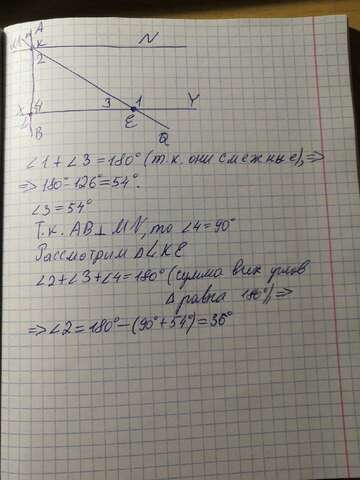 A
M
K
N
2
X
4
3
1
Y
L
E
B
Q
∠1+∠3=180° (т.к. они смежные), ⇒
⇒ 180°-126°=54°.
∠3=54°
Т.к. AB⊥MN, то ∠4=90°
Рассмотрим ΔLKE
∠2+∠3+∠4=180° (сумма всех углов
Δ равна 180°) ⇒
⇒ ∠2=180°-(90°+54°)=36°